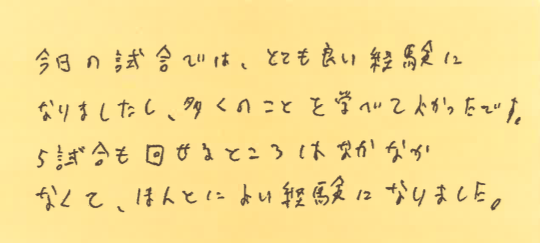 今日の試合では、とても良い経験に
なりましたし、多くのことを学べてよかったです。
5試合も回せるところはなかなか
なくて、ほんとによい経験になりました。